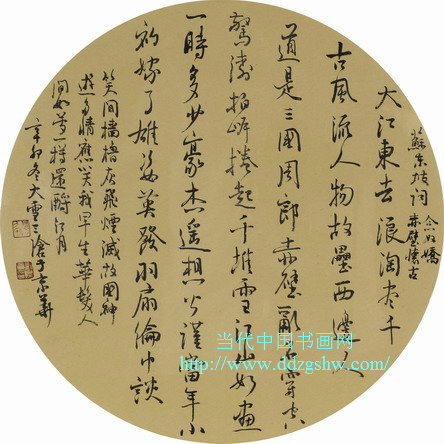 蘇東坡詞
念奴嬌
赤壁懷古
大江東去浪淘尽千
古風流人物故壘西邊人
道是三國周郎赤壁亂石穿空
驚濤拍岸捲起千堆雪江山如畫
一時多少豪杰遙想公瑾當年小
初嫁了雄姿英發羽扇綸巾談
笑間檣櫓灰飛煙滅故國神
遊多情應笑我早生華髮人
間如夢一樽還酹江月
辛卯冬大雪
当代中国书画网
http://www.ddzgshw.com/